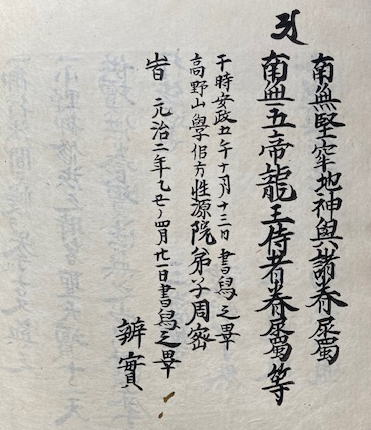 南無堅牢地神與諸眷屬
南無五帝龍王侍者眷屬等
于時安政五午十月十三日書寫之畢
高野山學侶方性源院弟子周密
旹元治二年乙丑ノ四月廿一日書寫之畢
辨實